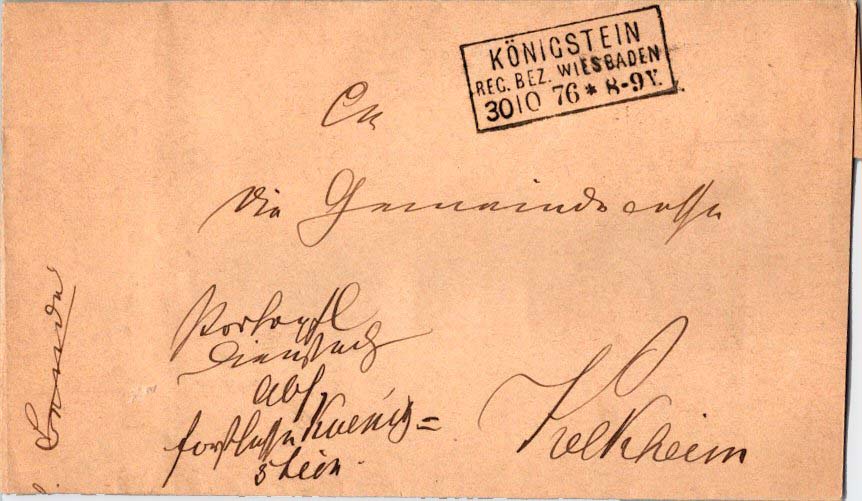 KÖNIGSTEIN
REG. BEZ. WIESBADEN
30 10 76 * 8-9V.
An
die Gemeindecasse
Portopfl
Dienstsach
Abs.
Forstkasse Koenig=
stein.
Kelkheim